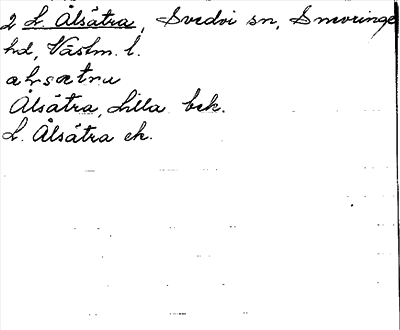 2 L. Ålsätra, Svedvi sn, Snevringe
hd, Västm. l.
alsætru
Ålsätra, Lilla bek.
L. Ålsätra ek.